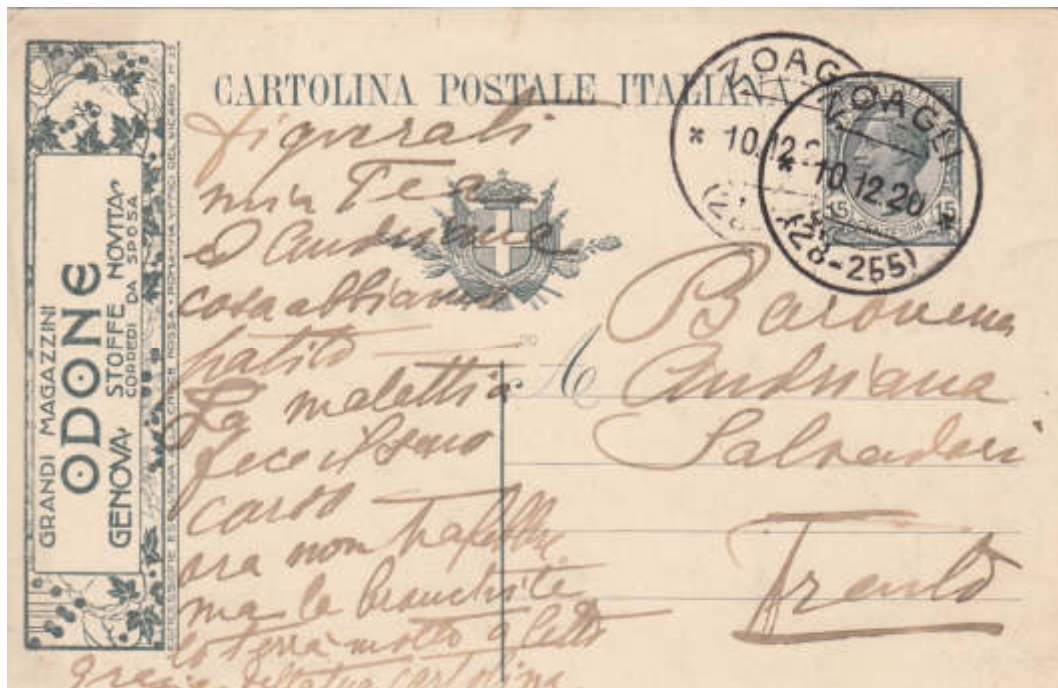 GRANDI MAGAZZINI
ODONE
GENOVA, STOFFE NOVITÀ,
CORREDI DA SPOSA
CONCESSIONE ESCLUSIVA CROCE ROSSA ROMA VIA
CARTOLINA POSTALE ITALIANA
ZOAGLI
* 10.12.2
(28
ZOAGLI
* 10.12.20 *
(28-255)
15 CENTESIMI 15
figurati
mia Tea
e Andriana
cosa abbiamo
patito
La malattia
fece il suo
corso
ora non ha febbre
ma la bronchite
lo terrà molto a letto
grazie della tua cartolina.
A
Baronessa
Andriana
Salvadori
Trento